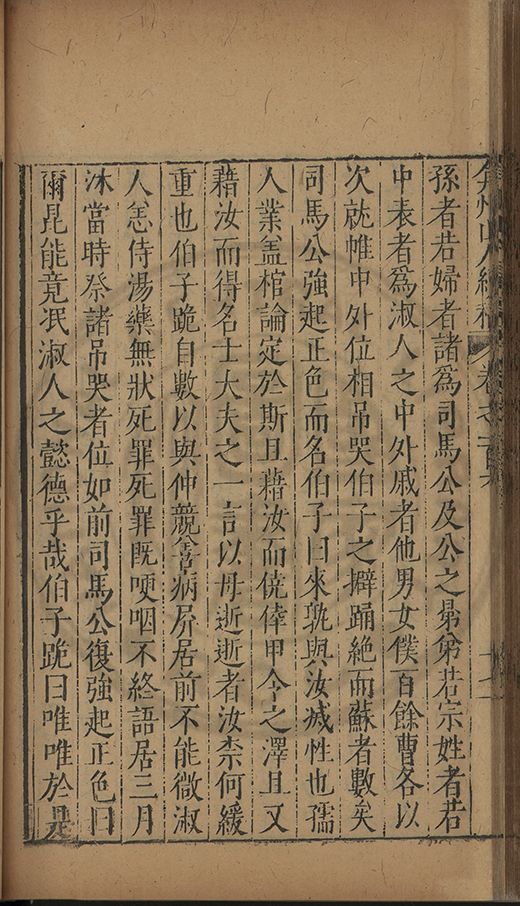 弇州山人續稿 卷之一百
孫者若婦者諸爲司馬公及公之㫷弟若宗姓者若
中表者爲淑人之中外戚者他男女僕百餘曹各以
次就帷中外位相吊哭伯子之擗踊絶而蘇者數矣
司馬公強起正色而名伯子曰來孰與汝烕性也孺
人業盖棺論定於斯且藉汝而僥倖甲令之澤且又
藉汝而得名士大夫之一言以毋逝逝者汝柰何緩
重也伯子跪自數以與仲競善病屛居前不能微淑
人恙侍湯藥無狀死罪死罪旣哽咽不終語居三月
沐當時祭諸吊哭者位如前司馬公復強起正色曰
爾昆能竟泯淑人之懿德乎哉伯子跪曰唯唯於是